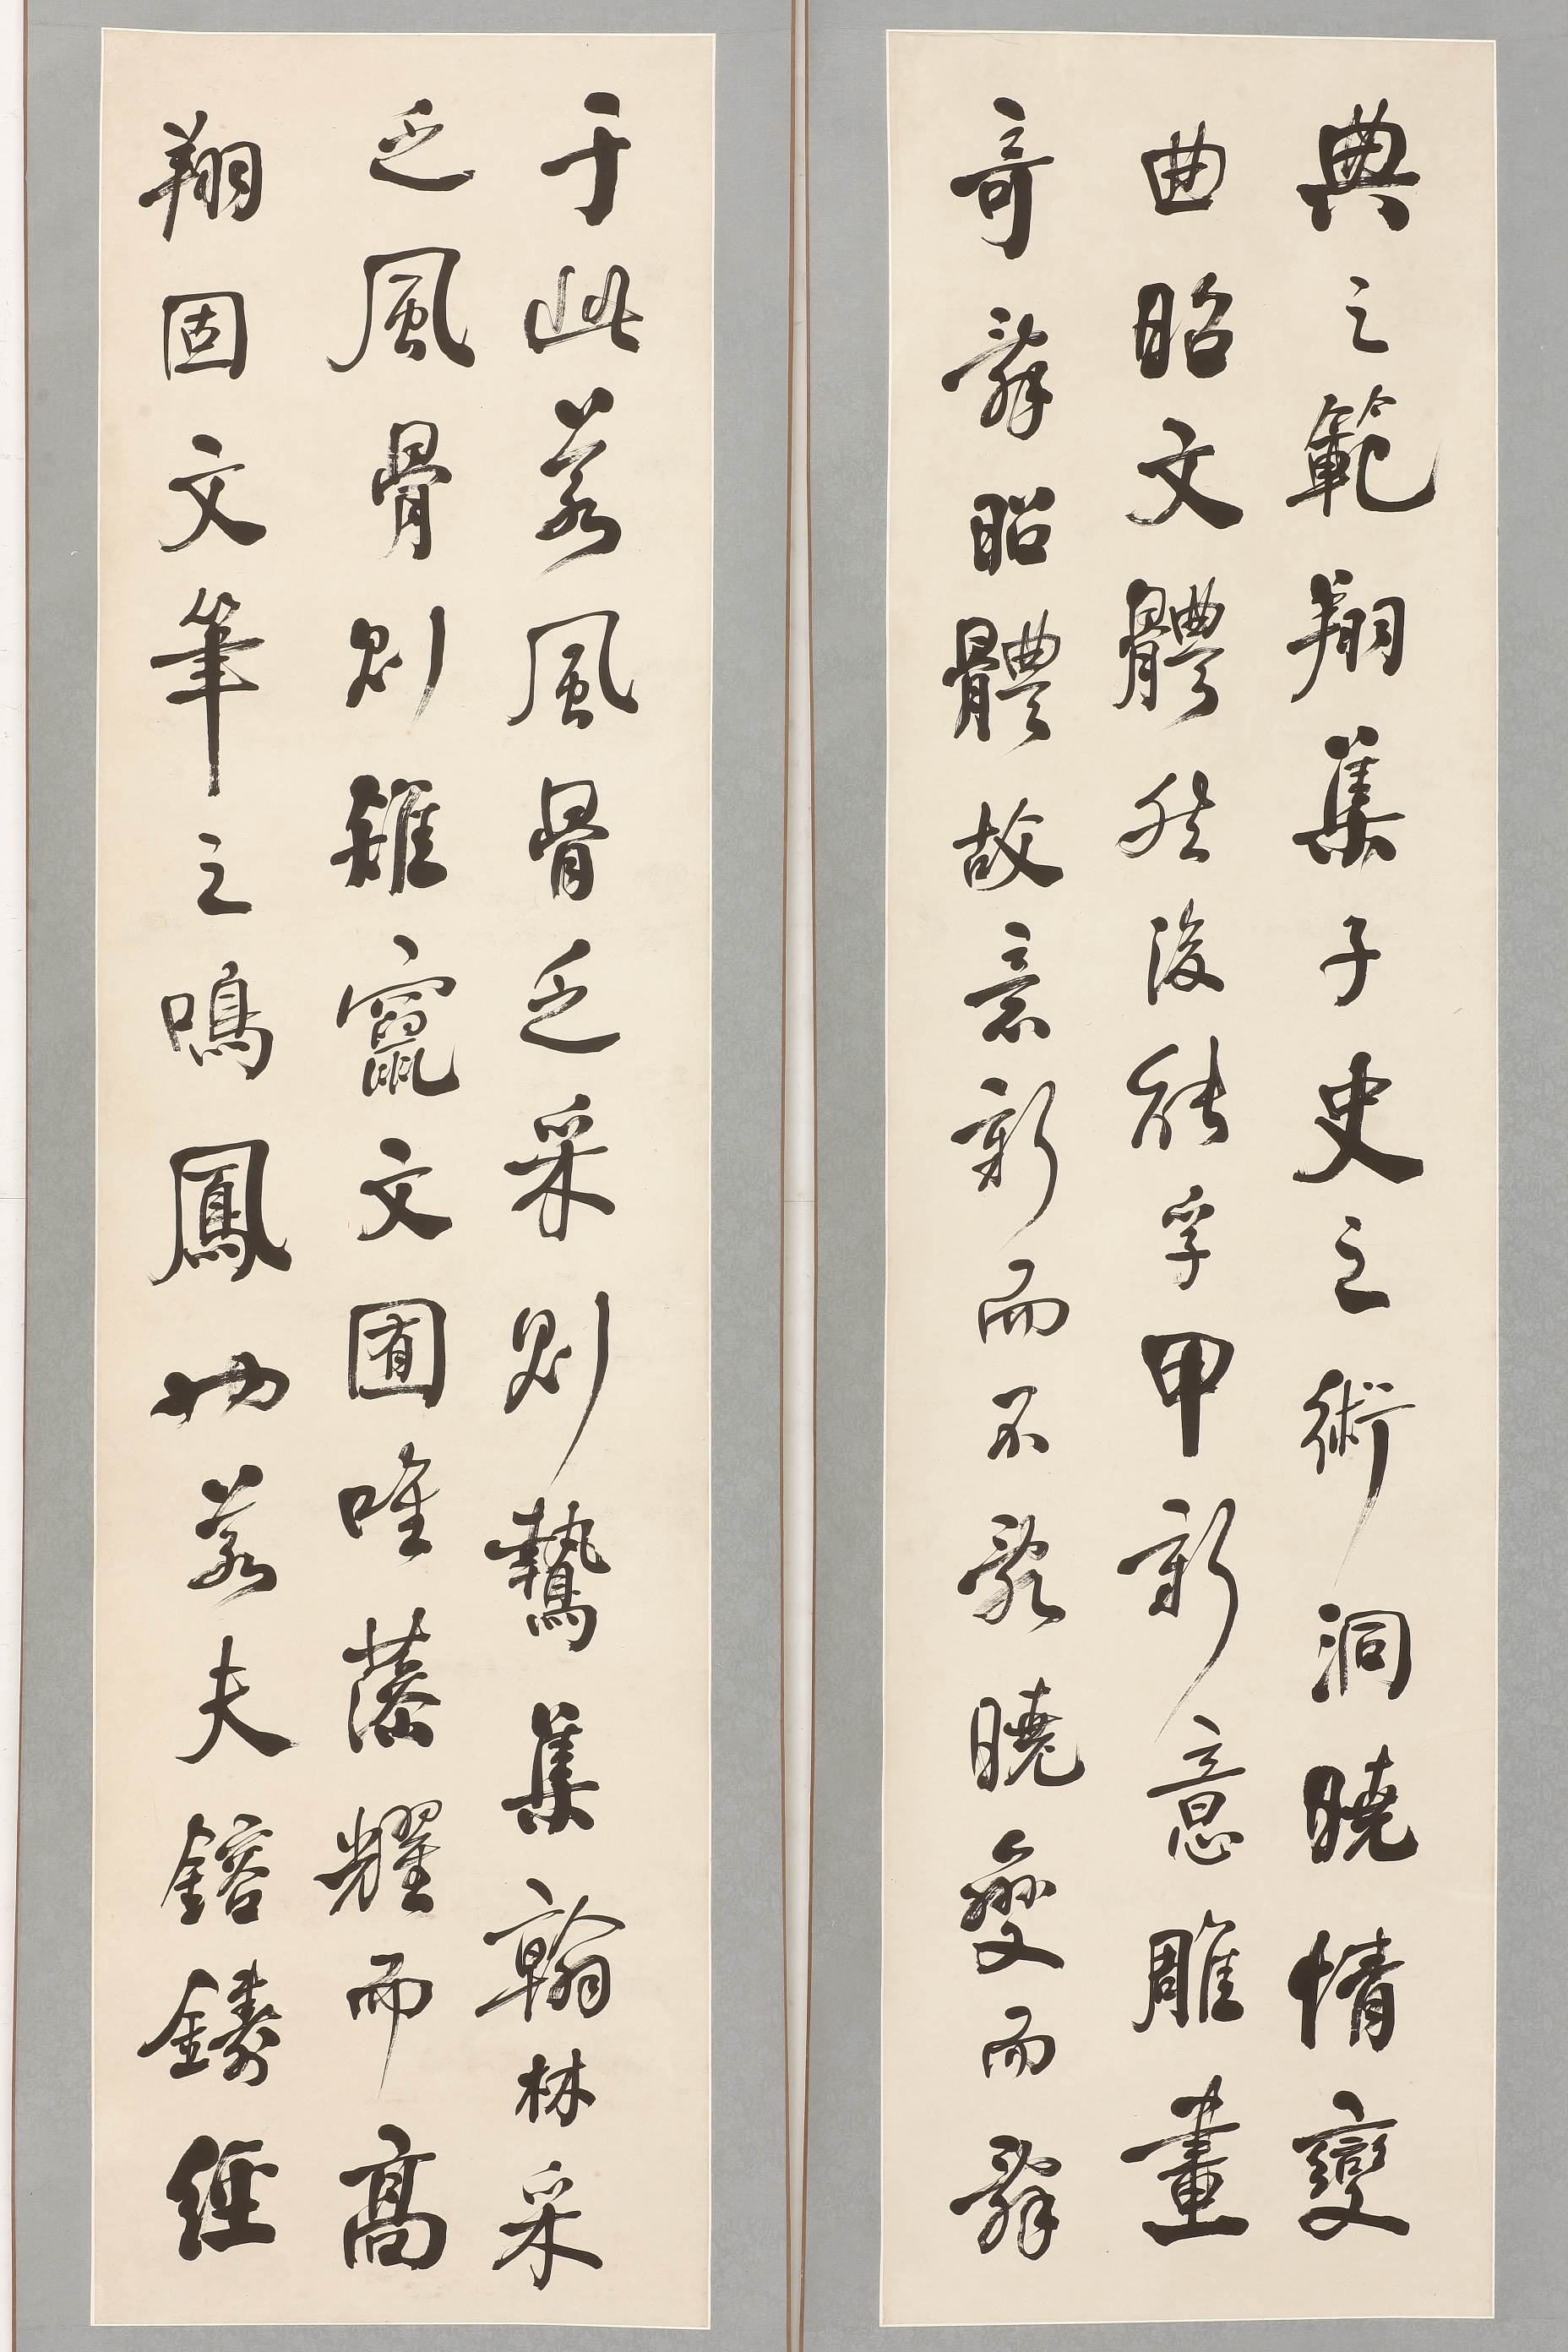 于此若風骨乏采則鷙集翰林采
乏風骨則雉竄文囿唯藻耀而高
翔固文筆之鳴鳳也若夫鎔鑄經
典之範翔集子史之術洞曉情變
曲昭文體然後能孚甲新意雕畫
奇辭昭體故意新而不亂曉變而辭